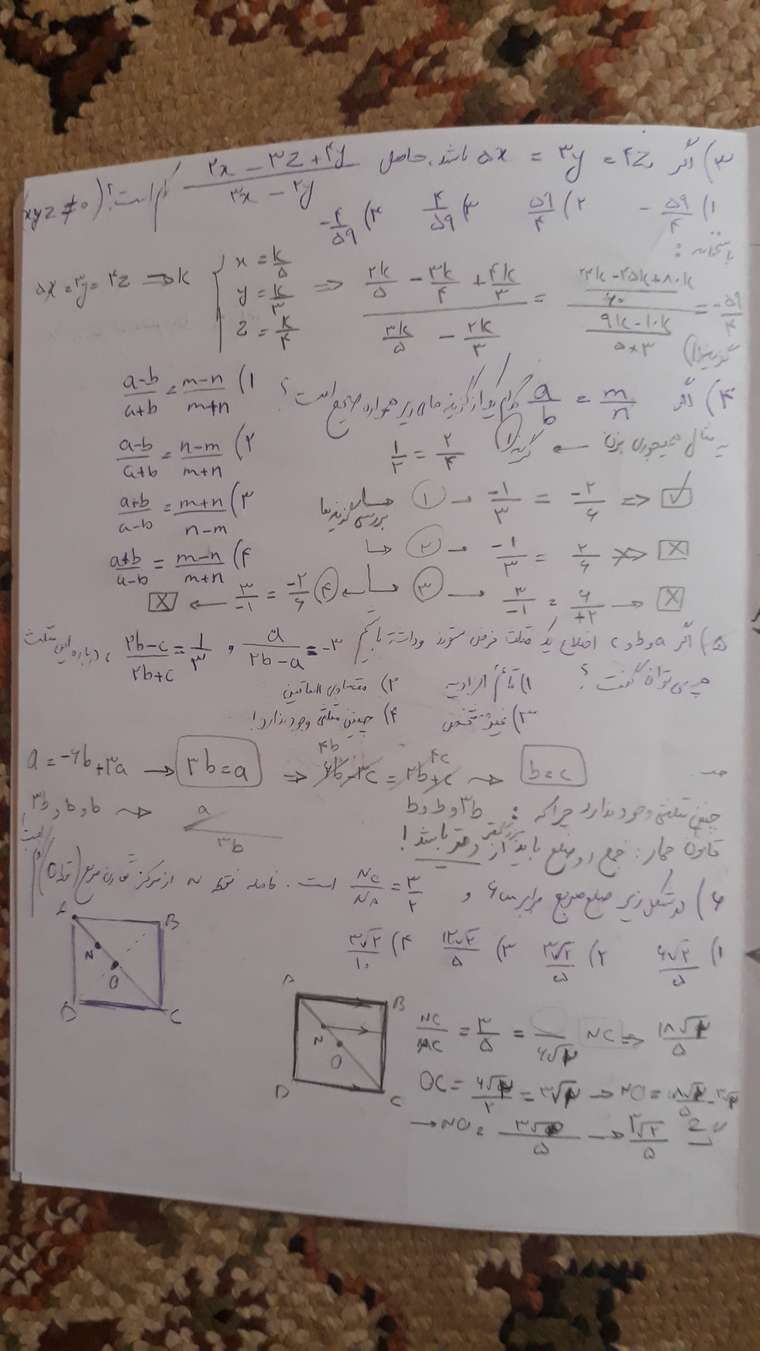 ۳) اگر ۵x = ۳y = ۴z باشد، حاصل (۲x − ۳z + ۴y)/(۳x − ۲y) کدام است؟ (xyz ≠ ۰)
۱) −۵۹/۴ ۲) ۵۹/۴ ۳) ۴/۵۹ ۴) −۴/۵۹
پاسخنامه:
۵x = ۳y = ۴z ⇒ k { x = k/۵ y = k/۳ z = k/۴ ⇒ (۲k/۵ − ۳k/۴ + ۴k/۳)/(۳k/۵ − ۲k/۳) = ((۲۴k − ۴۵k + ۸۰k)/۶۰)/((۹k − ۱۰k)/(۵×۳)) = −۵۹/۴
گزینه ۱)
۴) اگر a/b = m/n کدام یک از گزینه های زیر همواره صحیح است؟
۱) (a−b)/(a+b) = (m−n)/(m+n)
۲) (a−b)/(a+b) = (n−m)/(m+n)
۳) (a+b)/(a−b) = (m+n)/(n−m)
۴) (a+b)/(a−b) = (m−n)/(m+n)
یه مثال همینجوری بزن ← گزینه ۱ ۱/۲ = ۲/۴
بررسی گزینه‌ها ۱ → −۱/۳ = −۲/۶ ⇒ ✓
۲ → −۱/۳ = ۲/۶ ⇒ X
۳ → ۳/−۱ = ۶/+۲ → X
۴ ۳/−۱ = −۲/۶ → X
۵) اگر a و b و c اضلاع یک مثلث فرض شود و داشته باشیم a/(۲b−a) = −۳ و (۲b−c)/(۲b+c) = ۱/۳، درباره این مثلث
چه می توان گفت؟
۱) قائم الزاویه ۲) متساوی الساقین
۳) غیر مشخص ۴) چنین مثلثی وجود ندارد!
a = −۶b + ۳a → ۳b = a ⇒ ۶b − ۳c = ۲b + c ⇒ b = c
۴b ۴c
چنین مثلثی وجود ندارد چرا که: ۳b و b و b
۳b و b و b a ۳b
قانون حمار: جمع دو ضلع باید از بزرگتر باشد!
۶) در شکل زیر ضلع مربع برابر با ۶ و NC/NA = ۳/۲ است. فاصله نقطه N از مرکز تقارن مربع (نقطه O) کدام است؟
۱) ۶√۲/۵ ۲) ۳√۲/۵ ۳) ۱۲√۲/۵ ۴) ۳√۲/۱۰
A B N O D C
A B N O D C
NC/AC = ۳/۵ = /۶√۲ NC ⇒ ۱۸√۲/۵
OC = ۶√۲/۲ = ۳√۲ → NO = ۱۸√۲/۵ − ۳√۲
→ NO = ۳√۲/۵ → ۳√۲/۵